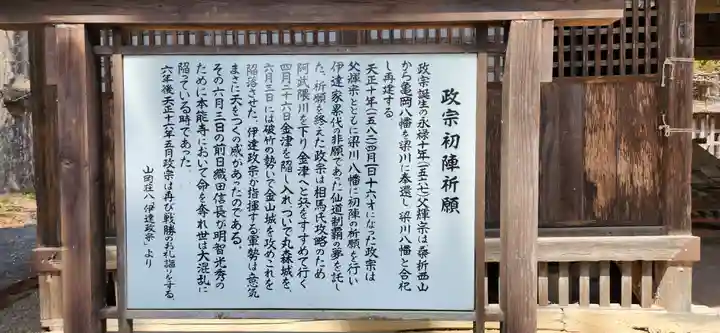 政宗初陣祈願
政宗誕生の永禄十年(一五六七)父輝宗は泰折西山
から亀岡八幡を梁川に奉還し梁川八幡と合祀
し再建する
天正十年(一五八二)四月(旧)十六才になった政宗は
父輝宗とともに梁川八幡に初陣の祈願を行い
伊達家累代の非願であった仙道制覇の夢を託し
た。祈願を終えた政宗は相馬氏攻略のため
阿武隈川を下り金津へと兵をすすめて行く
四月二十六日金津を陥し入れ、ついで丸森城を、
六月三日には破竹の勢いで金山城を攻めこれを
陥落させた。伊達政宗が指揮する軍勢は意気
まさに天をつくの感があったのである。
その六月三日の前日織田信長が明智光秀の
ために本能寺において命を奪れ世は大混乱に
陥っている時であった。
六年後天正十六年五月政宗は再び戦勝のお礼詣りをする。
山岡荘八「伊達政宗」より